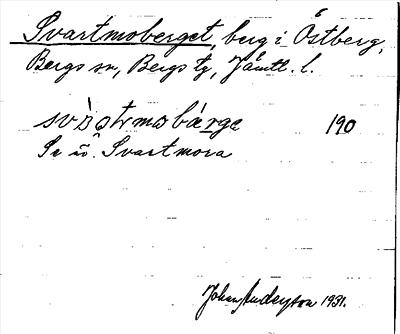 Svartmoberget, berg i Östberg,
Bergs sn, Bergs tg, Jämtl. l.
190
Se ö. Svartmora
Johan Anderson 1931.